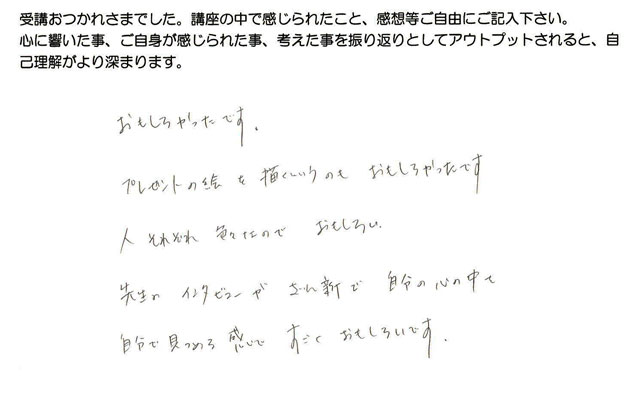 受講おつかれさまでした。講座の中で感じられたこと、感想等ご自由にご記入下さい。
心に響いた事、ご自身が感じられた事、考えた事を振り返りとしてアウトプットされると、自
己理解がより深まります。
おもしろかったです。
プレゼントの絵を描くというのもおもしろかったです
人それぞれ色々なので おもしろい
先生の インタビューが ざん新で 自分の心の中を
自分で見つめる感じで すごく おもしろいです。